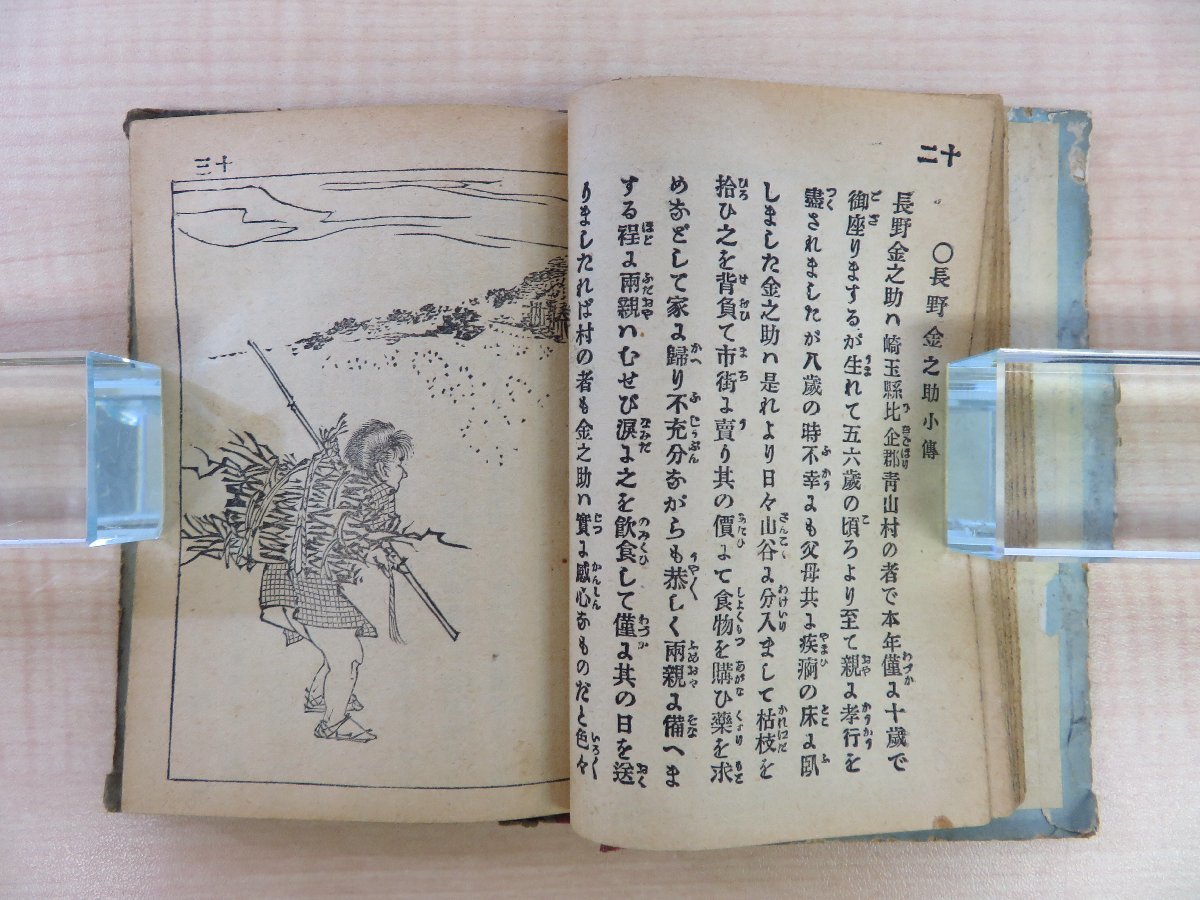 十二
〇長野金之助小傳
長野金之助ハ崎玉縣比企郡靑山村の者で本年僅よ十歲で
御座りまするが生れて五六歲の頃ろより至て親よ孝行を
盡されましたが八歲の時不幸よも父母共よ疾痾の床よ臥
しました金之助ハ是れより日々山谷よ分入まして枯枝を
拾ひ之を背負て市街よ賣り其の價よて食物を購ひ藥を求
めなどして家よ歸り不充分ながらも恭しく兩親よ備へま
する程よ兩親ハむせび淚よ之を飮食して僅よ其の日を送
りましたれば村の者も金之助ハ實よ感心なものだと色々
十三